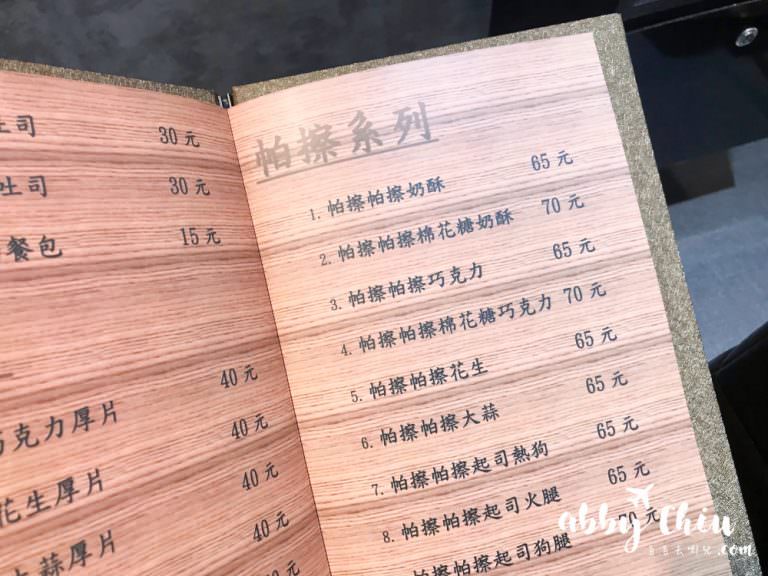 吐司 30 元
吐司 30 元
餐包 15 元
巧克力厚片 40 元
花生厚片 40 元
大蒜厚片 40 元
40 元
帕擦系列
1. 帕擦帕擦奶酥 65 元
2. 帕擦帕擦棉花糖奶酥 70 元
3. 帕擦帕擦巧克力 65 元
4. 帕擦帕擦棉花糖巧克力 70 元
5. 帕擦帕擦花生 65 元
6. 帕擦帕擦大蒜 65 元
7. 帕擦帕擦起司熱狗 65 元
8. 帕擦帕擦起司火腿 65 元
帕擦帕擦起司狗腿 70 元
abby Chiu
.com